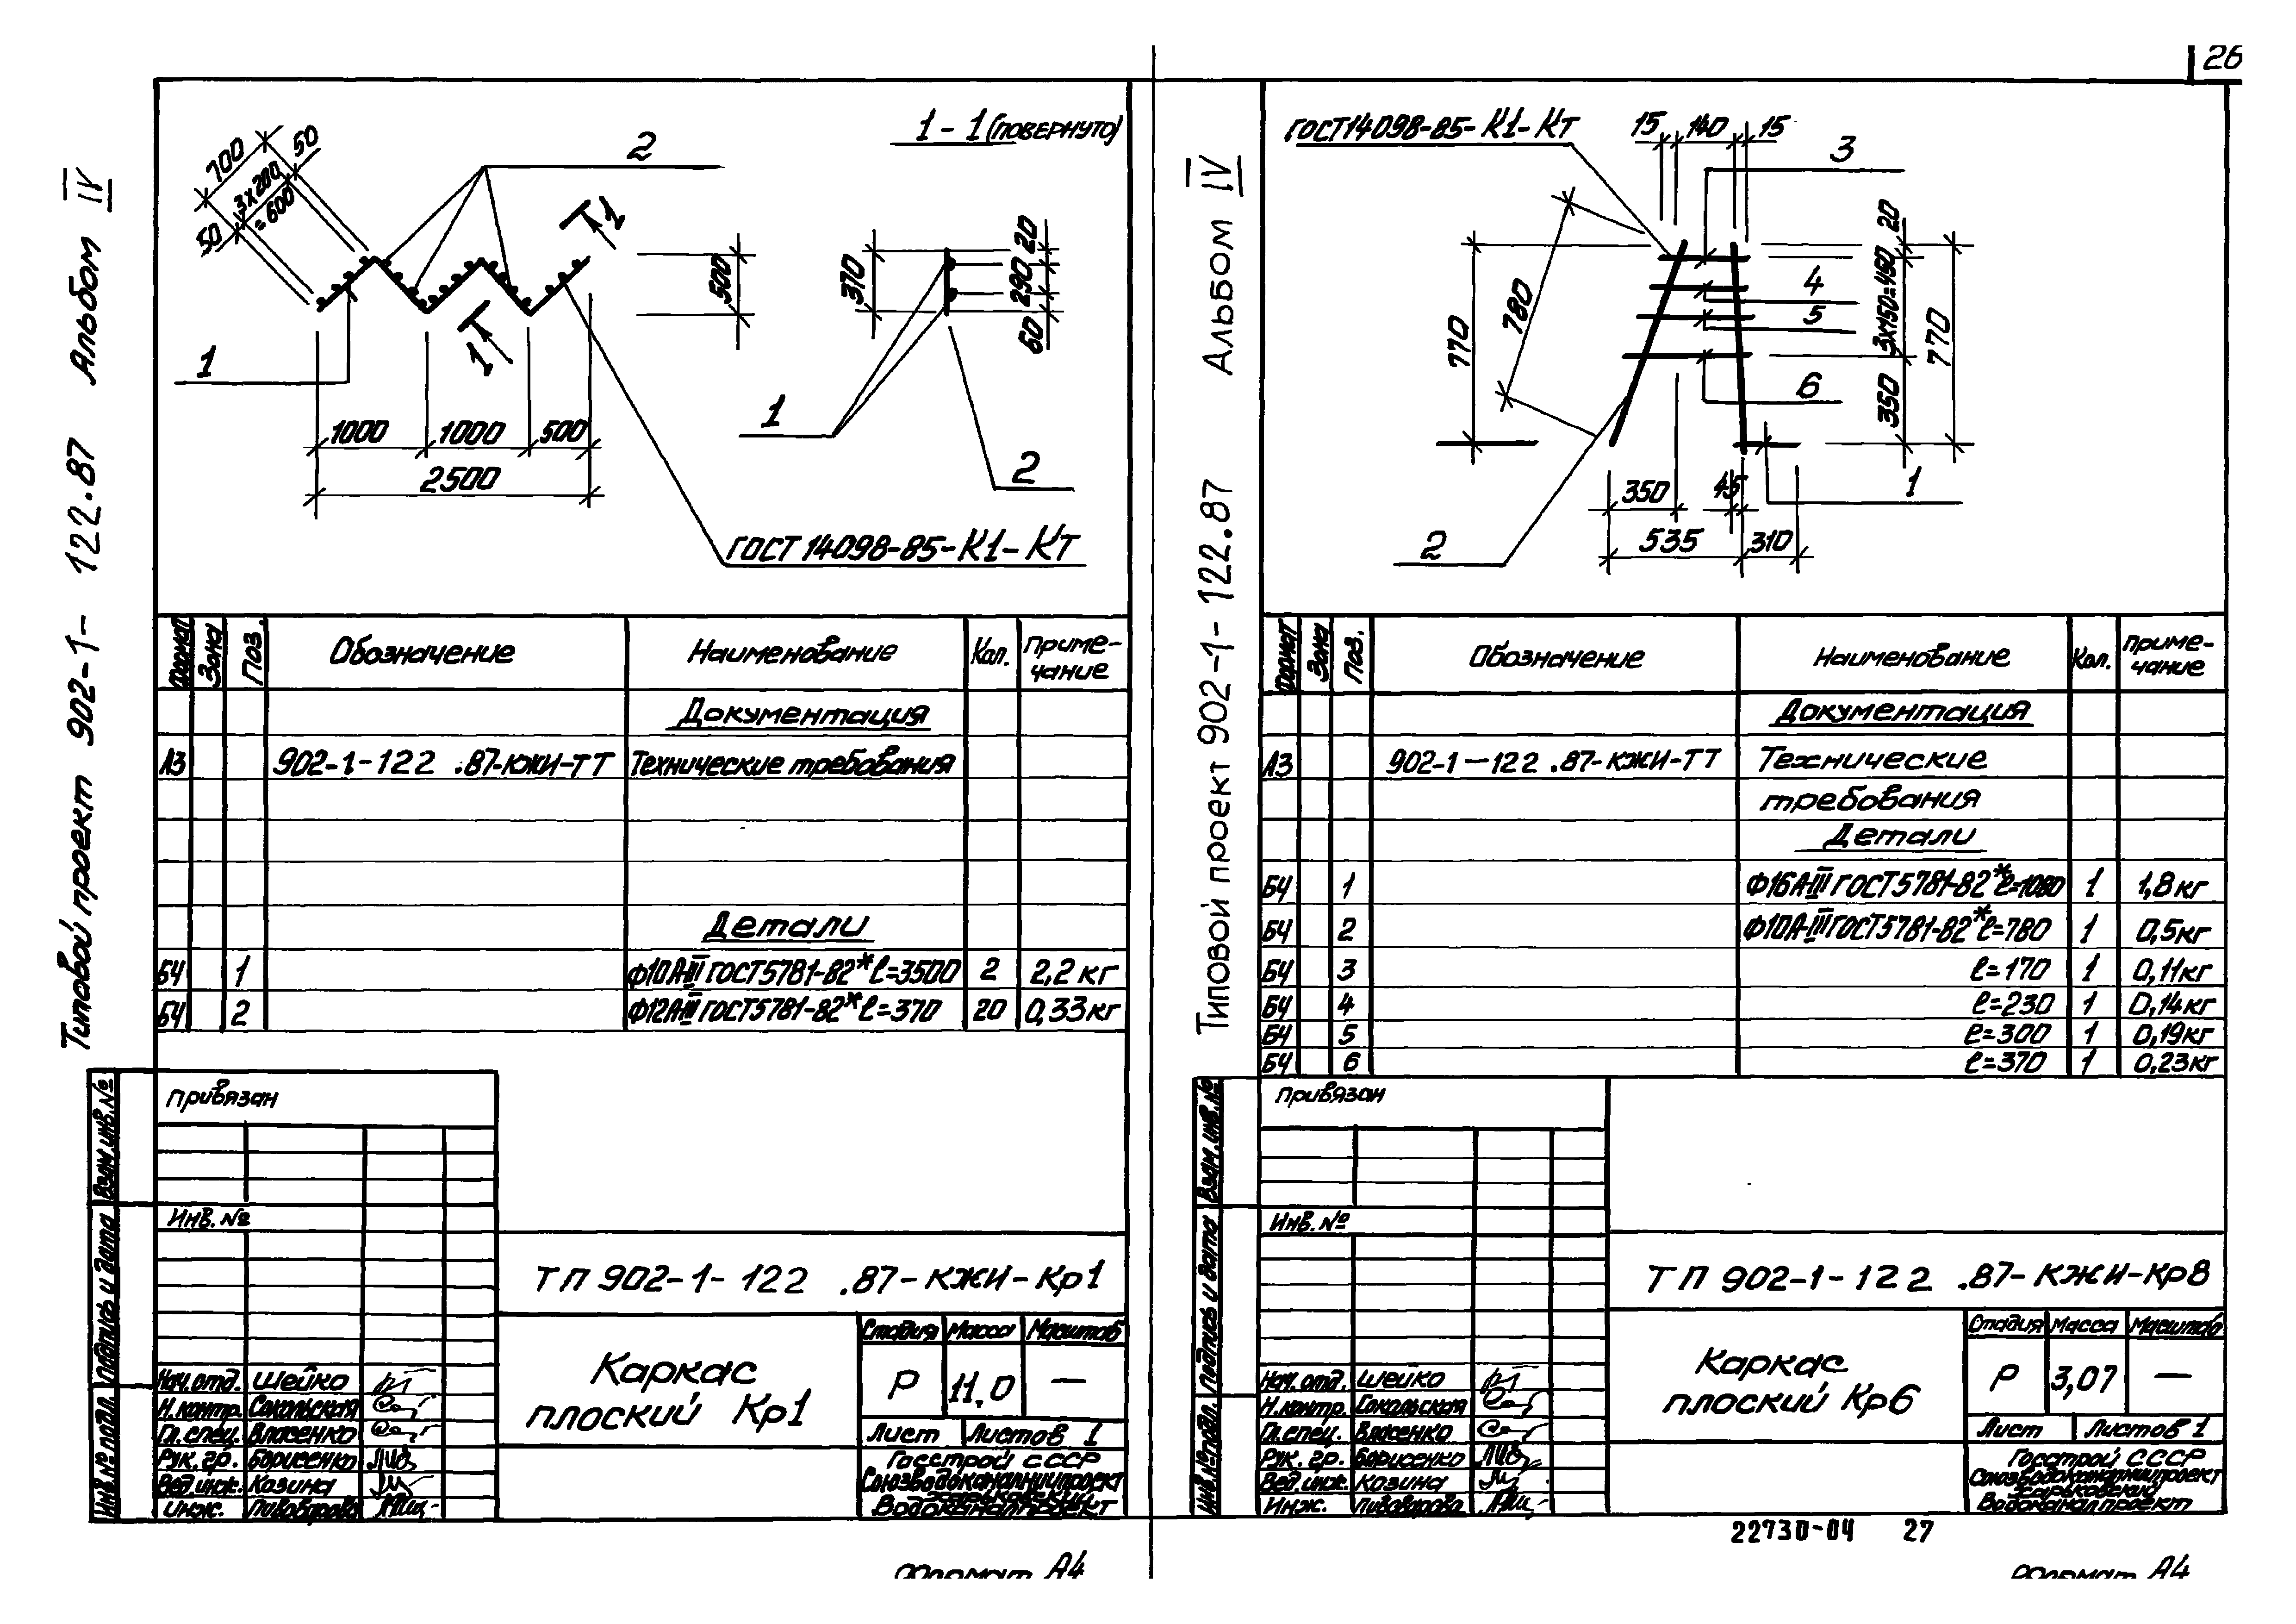 26
Типовой проект 902-1-122.87 Альбом IV
1-1 (повернуто)
700
50
3х200
=600
50
2
1
1
1
1000
1000
500
2500
500
370
20
290
60
1
2
ГОСТ 14098-85-К1-Кт
Формат Зона Поз. Обозначение Наименование Кол. Примечание
Документация
А3 902-1-122 .87-КЖИ-ТТ Технические требования
Детали
БЧ 1 Ф10А-III ГОСТ5781-82* ℓ=3500 2 2,2 кг
БЧ 2 Ф12А-III ГОСТ5781-82* ℓ=370 20 0,33 кг
Привязан
Инв. №
Взам. инв. №
Подпись и дата
Инв. № подл.
ТП 902-1-122 .87-КЖИ-Кр1
Нач. отд. Шейко
Н. контр. Сокольская
Гл. спец. Власенко
Рук. гр. Борисенко
Вед. инж. Козина
Инж. Пивоварова
Каркас
плоский Кр1
Стадия Масса Масштаб
Р 11,0 —
Лист Листов 1
Госстрой СССР
Союзводоканалниипроект
Харьковский
Водоканалпроект
Формат А4
Типовой проект 902-1-122.87 Альбом IV
ГОСТ14098-85-К1-Кт
15 140 15
3
4
5
6
1
2
770
780
20
3х150=450
350
770
350
45
535
310
Формат Зона Поз. Обозначение Наименование Кол. Примечание
Документация
А3 902-1-122 .87-КЖИ-ТТ Технические
требования
Детали
БЧ 1 Ф16А-III ГОСТ5781-82* ℓ=1080 1 1,8 кг
БЧ 2 Ф10А-III ГОСТ5781-82* ℓ=780 1 0,5кг
БЧ 3 ℓ=170 1 0,11кг
БЧ 4 ℓ=230 1 0,14кг
БЧ 5 ℓ=300 1 0,19кг
БЧ 6 ℓ=370 1 0,23кг
Привязан
Инв. №
Взам. инв. №
Подпись и дата
Инв. № подл.
ТП 902-1-122 .87-КЖИ-Кр8
Нач. отд. Шейко
Н. контр. Сокольская
Гл. спец. Власенко
Рук. гр. Борисенко
Вед. инж. Козина
Инж. Пивоварова
Каркас
плоский Кр6
Стадия Масса Масштаб
Р 3,07 —
Лист Листов 1
Госстрой СССР
Союзводоканалниипроект
Харьковский
Водоканалпроект
22730-04 27
Формат А4